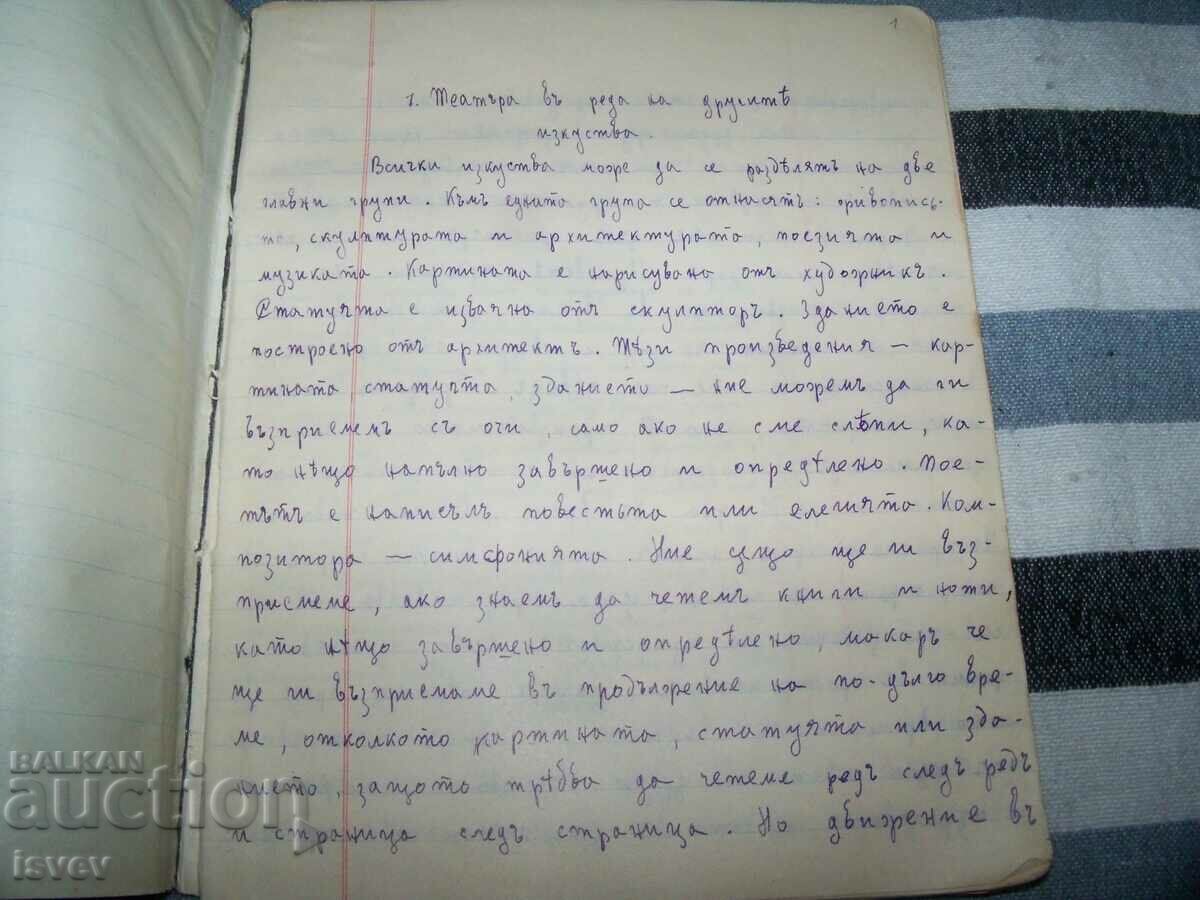 1
1. Театъра въ реда на другитѣ
изкуства.
Всички изкуства може да се раздѣлятъ на две
главни групи. Къмъ едната група се отнасятъ: живопись-
та, скулптурата и архитектурата, поезията и
музиката. Картината е нарисувана отъ художникъ.
Статуята е изваяна отъ скулпторъ. Зданието е
построено отъ архитектъ. Тѣзи произведения — кар-
тината, статуята, зданието — ние можемъ да ги
възприемемъ съ очи, само ако не сме слѣпи, ка-
то нѣщо напълно завършено и опредѣлено. Пое-
тътъ е написалъ повестьта или елегията. Ком-
позитора — симфонията. Ние също ще ги въз-
приемеме, ако знаемъ да четемъ книги и ноти,
като нѣщо завършено и опредѣлено, макаръ че
ще ги възприемаме въ продължение на по-дълго вре-
ме, отколкото картината, статуята или зда-
нието, защото трѣбва да четеме редъ следъ редъ
и страница следъ страница. Но движение въ
BALKAN
auction
isvev